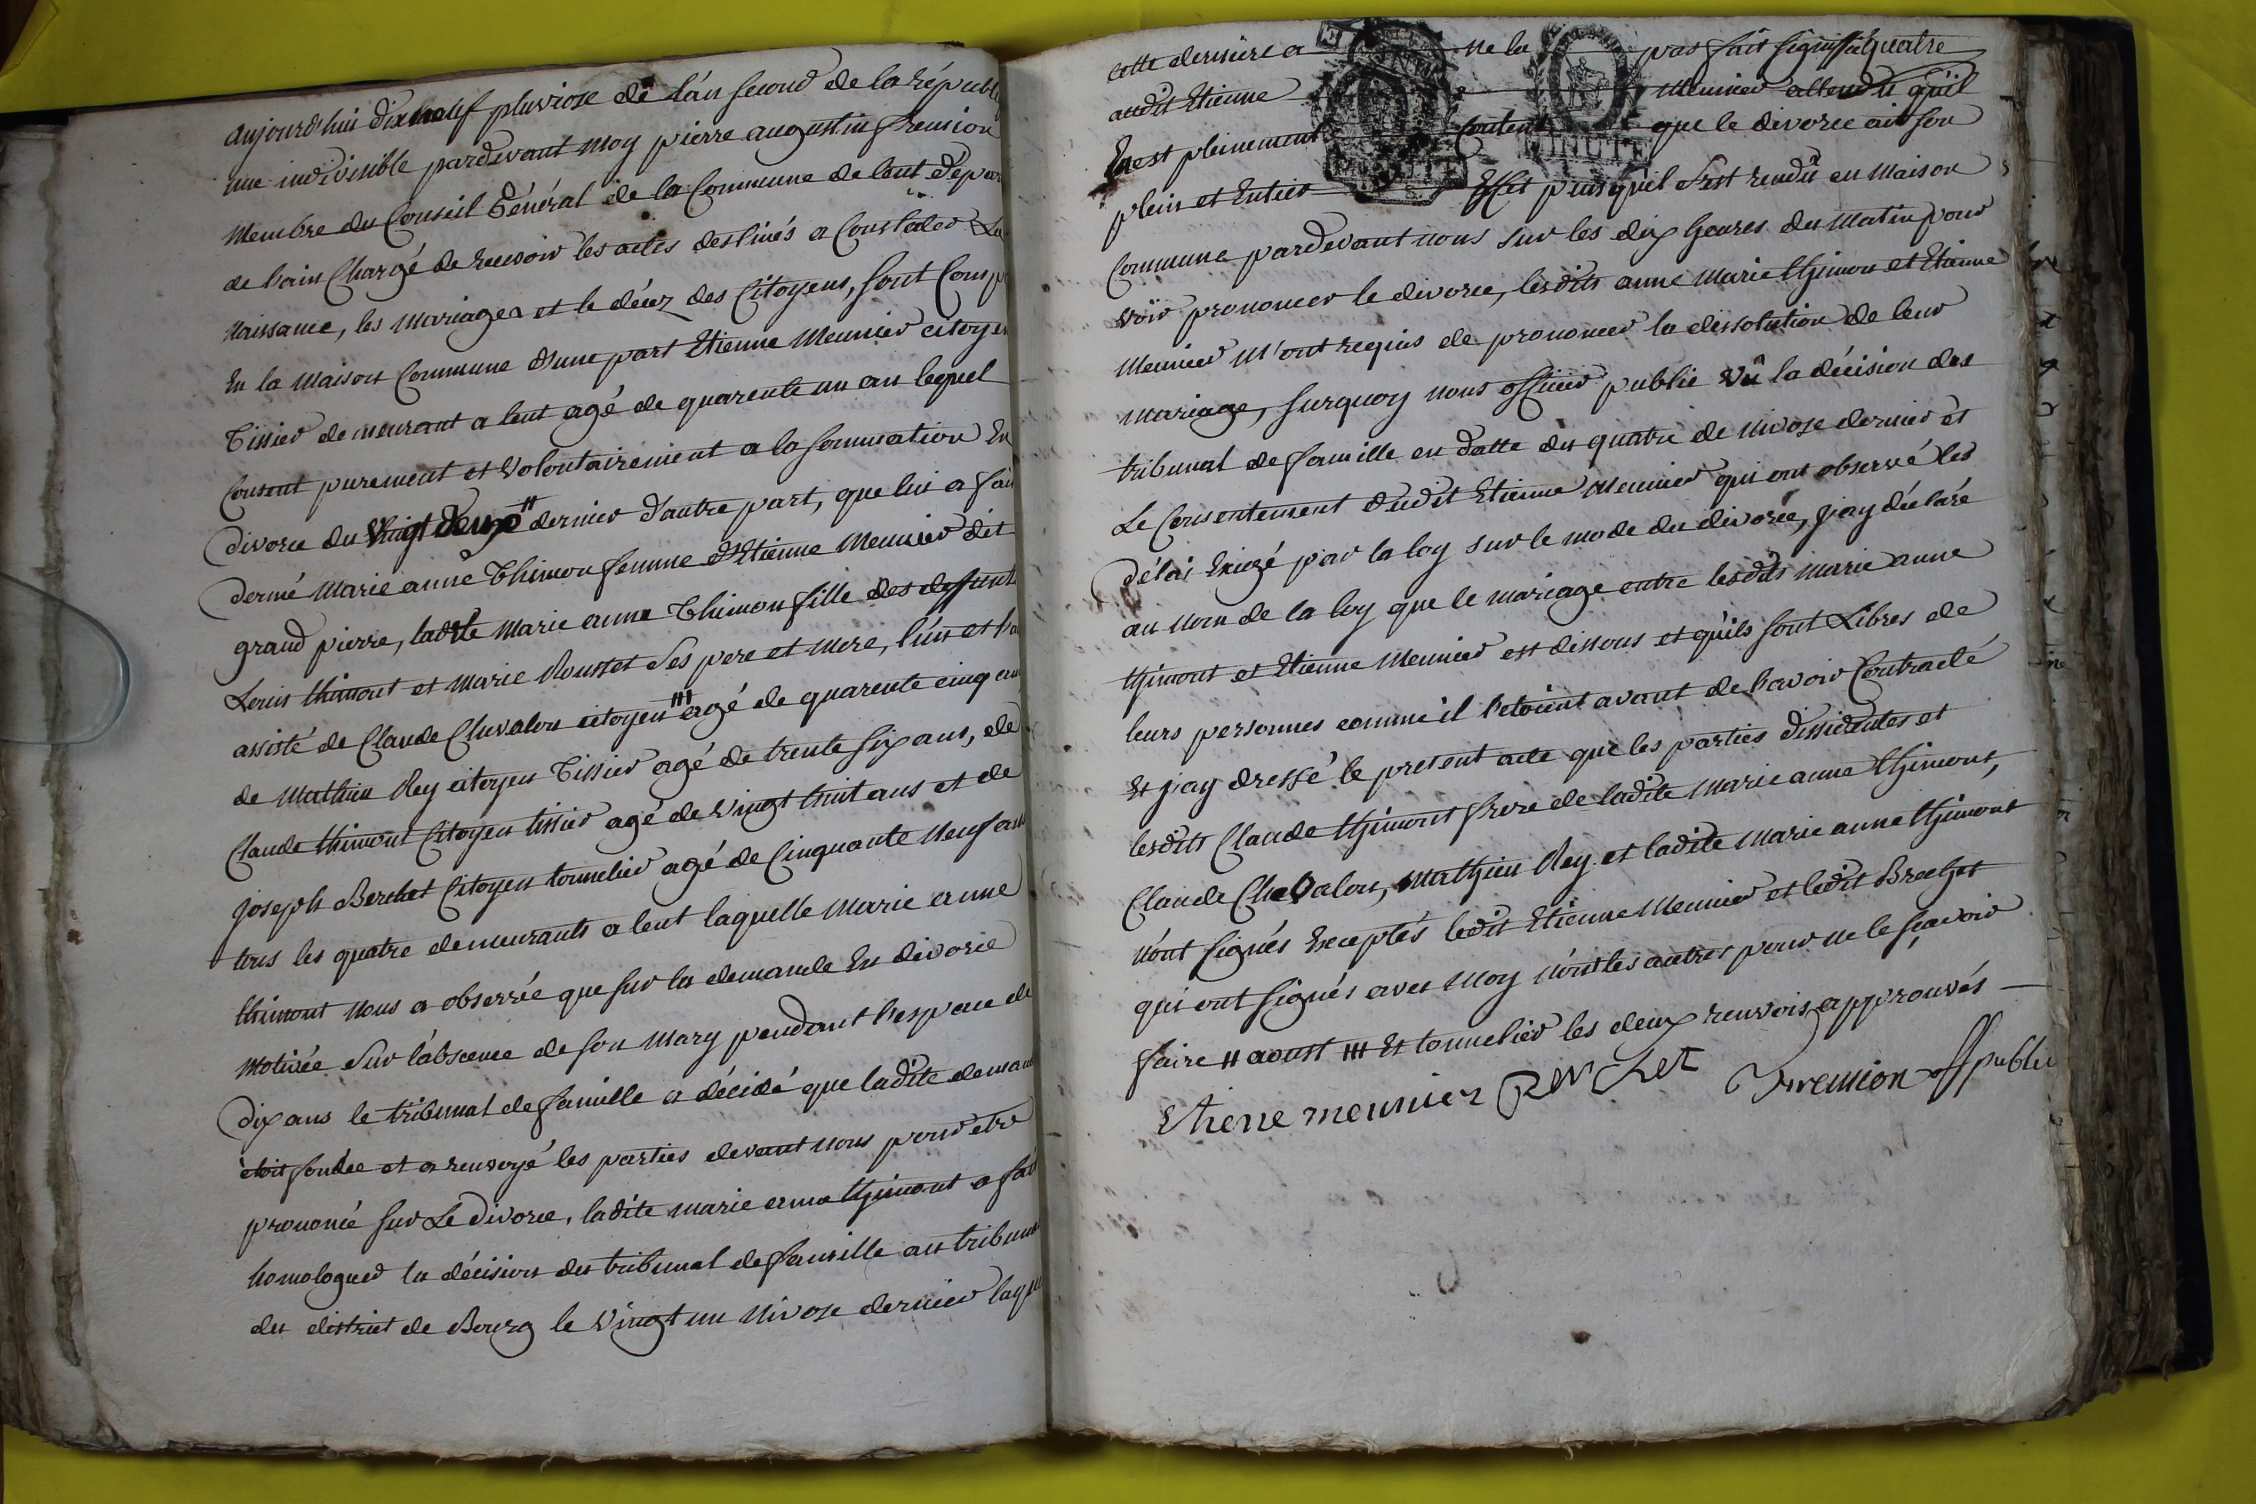 aujourd'hui dix neuf pluviose de l'an second de la républi
une indivisible pardevant moy pierre augustin fremion
Membre du Conseil Général de la Commune de lent dépar
de l'ain Chargé de recevoir les actes destinés a Constater La
naissance, les mariages et le décez des Citoyens, sont Comp
En la Maison Commune d'une part Etienne Meunier citoyen
Tissier demeurant a lent agé de quarente un an lequel
Consent purement et volontairement a la sommation En
divorce du vingt deux " dernier d'autre part, que lui a fai
donné Marie anne Thimon femme d'Etienne Meunier dit
grand pierre, ladite Marie anne Thimon fille des deffunts
Louis thimont et Marie Rousset ses pere et mere, l'un et l'au
assisté de Claude Chevalon citoyen "' agé de quarente cinq ans
de Mathieu Rey citoyen Tissier agé de trente six ans, de
Claude thimont Citoyen tissier agé de vingt huit ans et de
joseph Berchet Citoyen tonnelier agé de Cinquante Neuf ans
tous les quatre demeurants a lent laquelle Marie anne
thimont nous a observée que sur la demande En divorce
motivée sur l'absence de son mary pendant l'espace de
dix ans le tribunal de famille a décidé que ladite deman
étoit fondée et a renvoyé les parties devant nous pour etre
prononcé sur Le divorce, ladite marie anne thimont a fait
homologuer la décision du tribunal de famille au tribunal
du district de Bourg le vingt un Nivose dernier laque
cette derniere a ne la pas fait signiffié quatre
audit Etienne Meunier attendu qu'il
En est pleinement Content que le divorce ait son
plein et Entier Effet puisqu'il s'est rendu en Maison
Commune pardevant nous sur les dix heures du Matin pour
voir prononcer le divorce, lesdits anne Marie thimon et Etienne
Meunier m'ont requis de prononcer la dissolution de leur
mariage, surquoy nous officier public vû la décision du
tribunal de famille en datte du quatre de nivose dernier et
Le Consentement dudit Etienne Meunier qui ont observé les
délai Exigé par la loy sur le mode du divorce, j'ay déclaré
au nom de la loy que le mariage entre lesdits Marie anne
thimont et Etienne Meunier est dissous et qu'ils sont Libres de
leurs personnes comme il l'etoient avant de l'avoir Contracté
Et j'ay dressé le present acte que les parties dissidentes et
lesdits Claude thimont frere de ladite Marie anne thimont,
Claude Chevalon, Mathieu Rey et ladite Marie anne thimont
n'ont signés Exceptés ledit Etienne Meunier et ledit Brechet
qui ont signés avec moy non les autres pour ne le sçavoir
faire " aoust "' Et tonnelier les deux renvois approuvés
Etiene meunier Berchet fremion off public